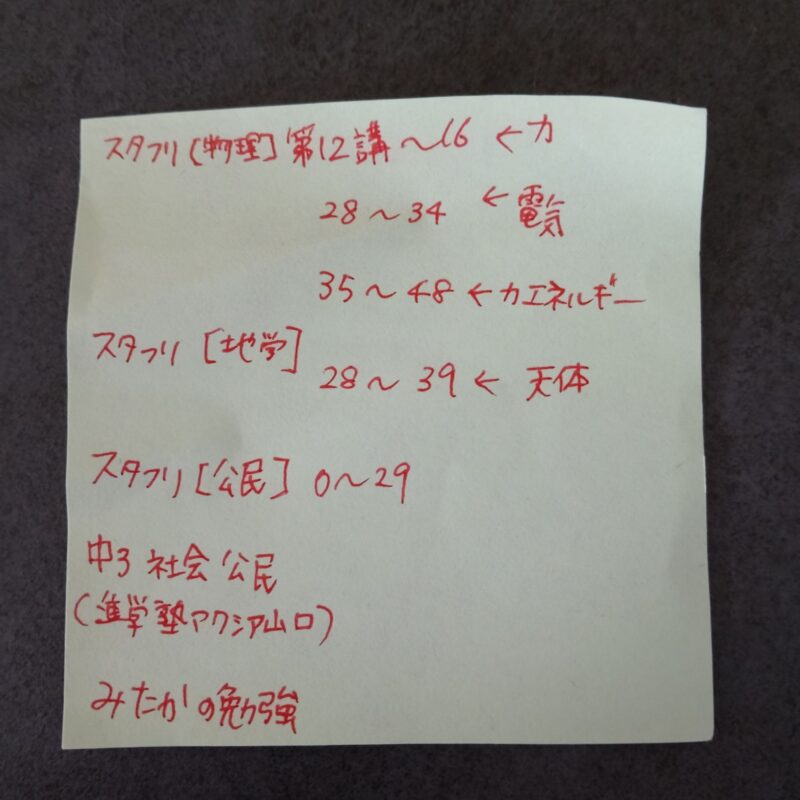 スタフリ[物理]第12講〜16 ←力
28〜34 ←電気
35〜48 ←力エネルギー
スタフリ [地学]
28〜39 ← 天体
スタフリ[公民] 0〜29
中3 社会 公民
(進学塾アクシア山口)
みたかの勉強